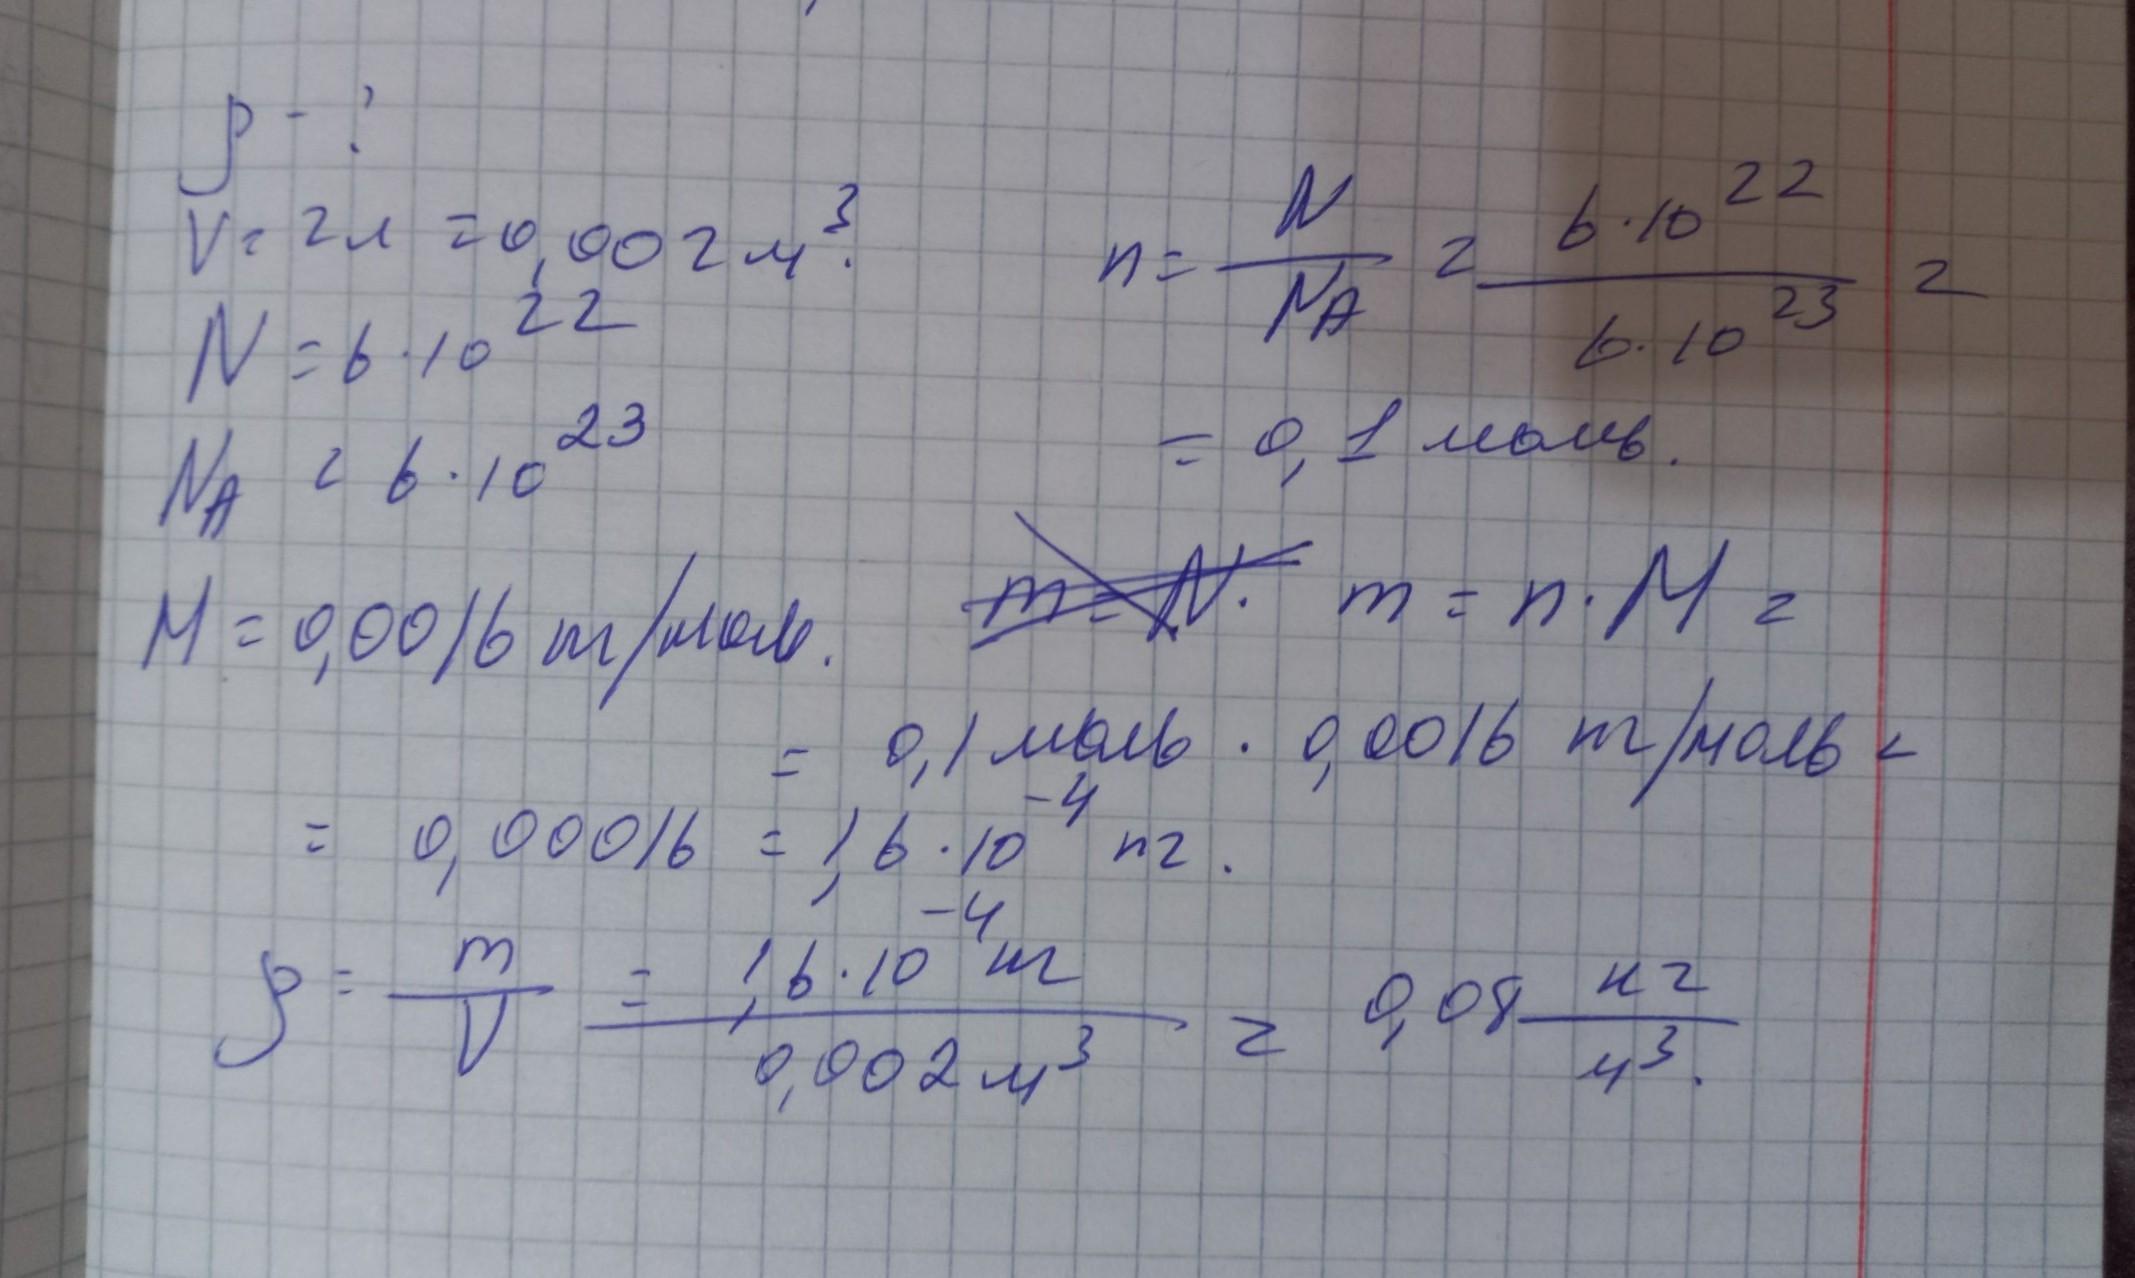 ρ - ?
V = 2л = 0,002 м³.
N = 6·10²²
N_A = 6·10²³
M = 0,0016 кг/моль.
n = N/N_A = 6·10²²/6·10²³ =
= 0,1 моль.
m = N· m = n·M =
= 0,1 моль · 0,0016 кг/моль =
= 0,00016 = 1,6·10⁻⁴ кг.
ρ = m/V = 1,6·10⁻⁴ кг/0,002 м³ = 0,08 кг/м³.